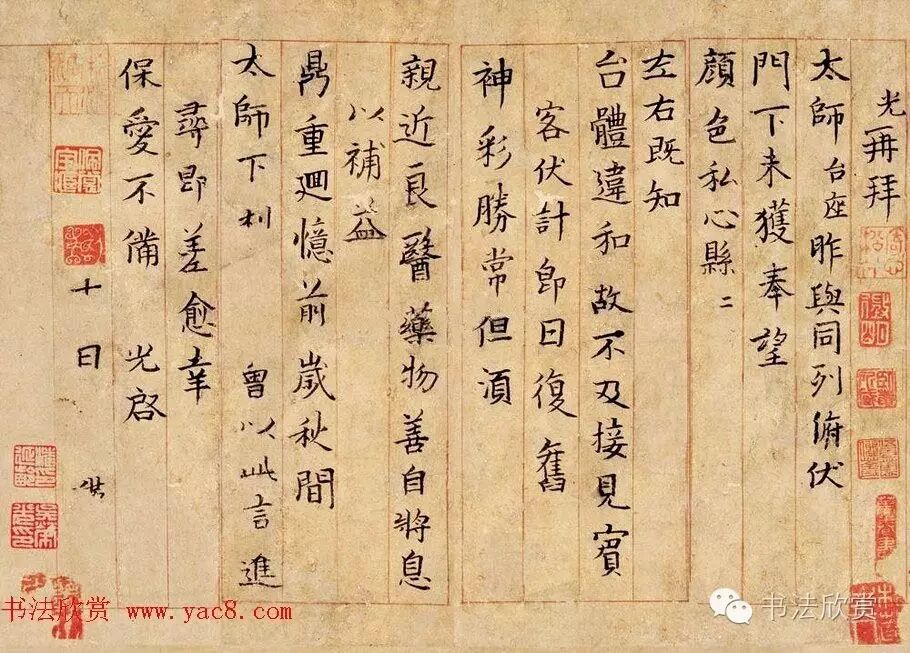 光再拜
太師台座昨與同列俯伏
門下未獲奉望
顏色私心縣二
左右既知
台體違和故不及接見賓
客伏計即日復舊
神彩勝常但湏
親近良醫藥物善自將息
以補益
鼎重迴憶前歲秋間
曾以此言進
太師下利
尋即差愈幸
保愛不備 光啓
十日
书法欣赏 www.yac8.com
书法欣赏